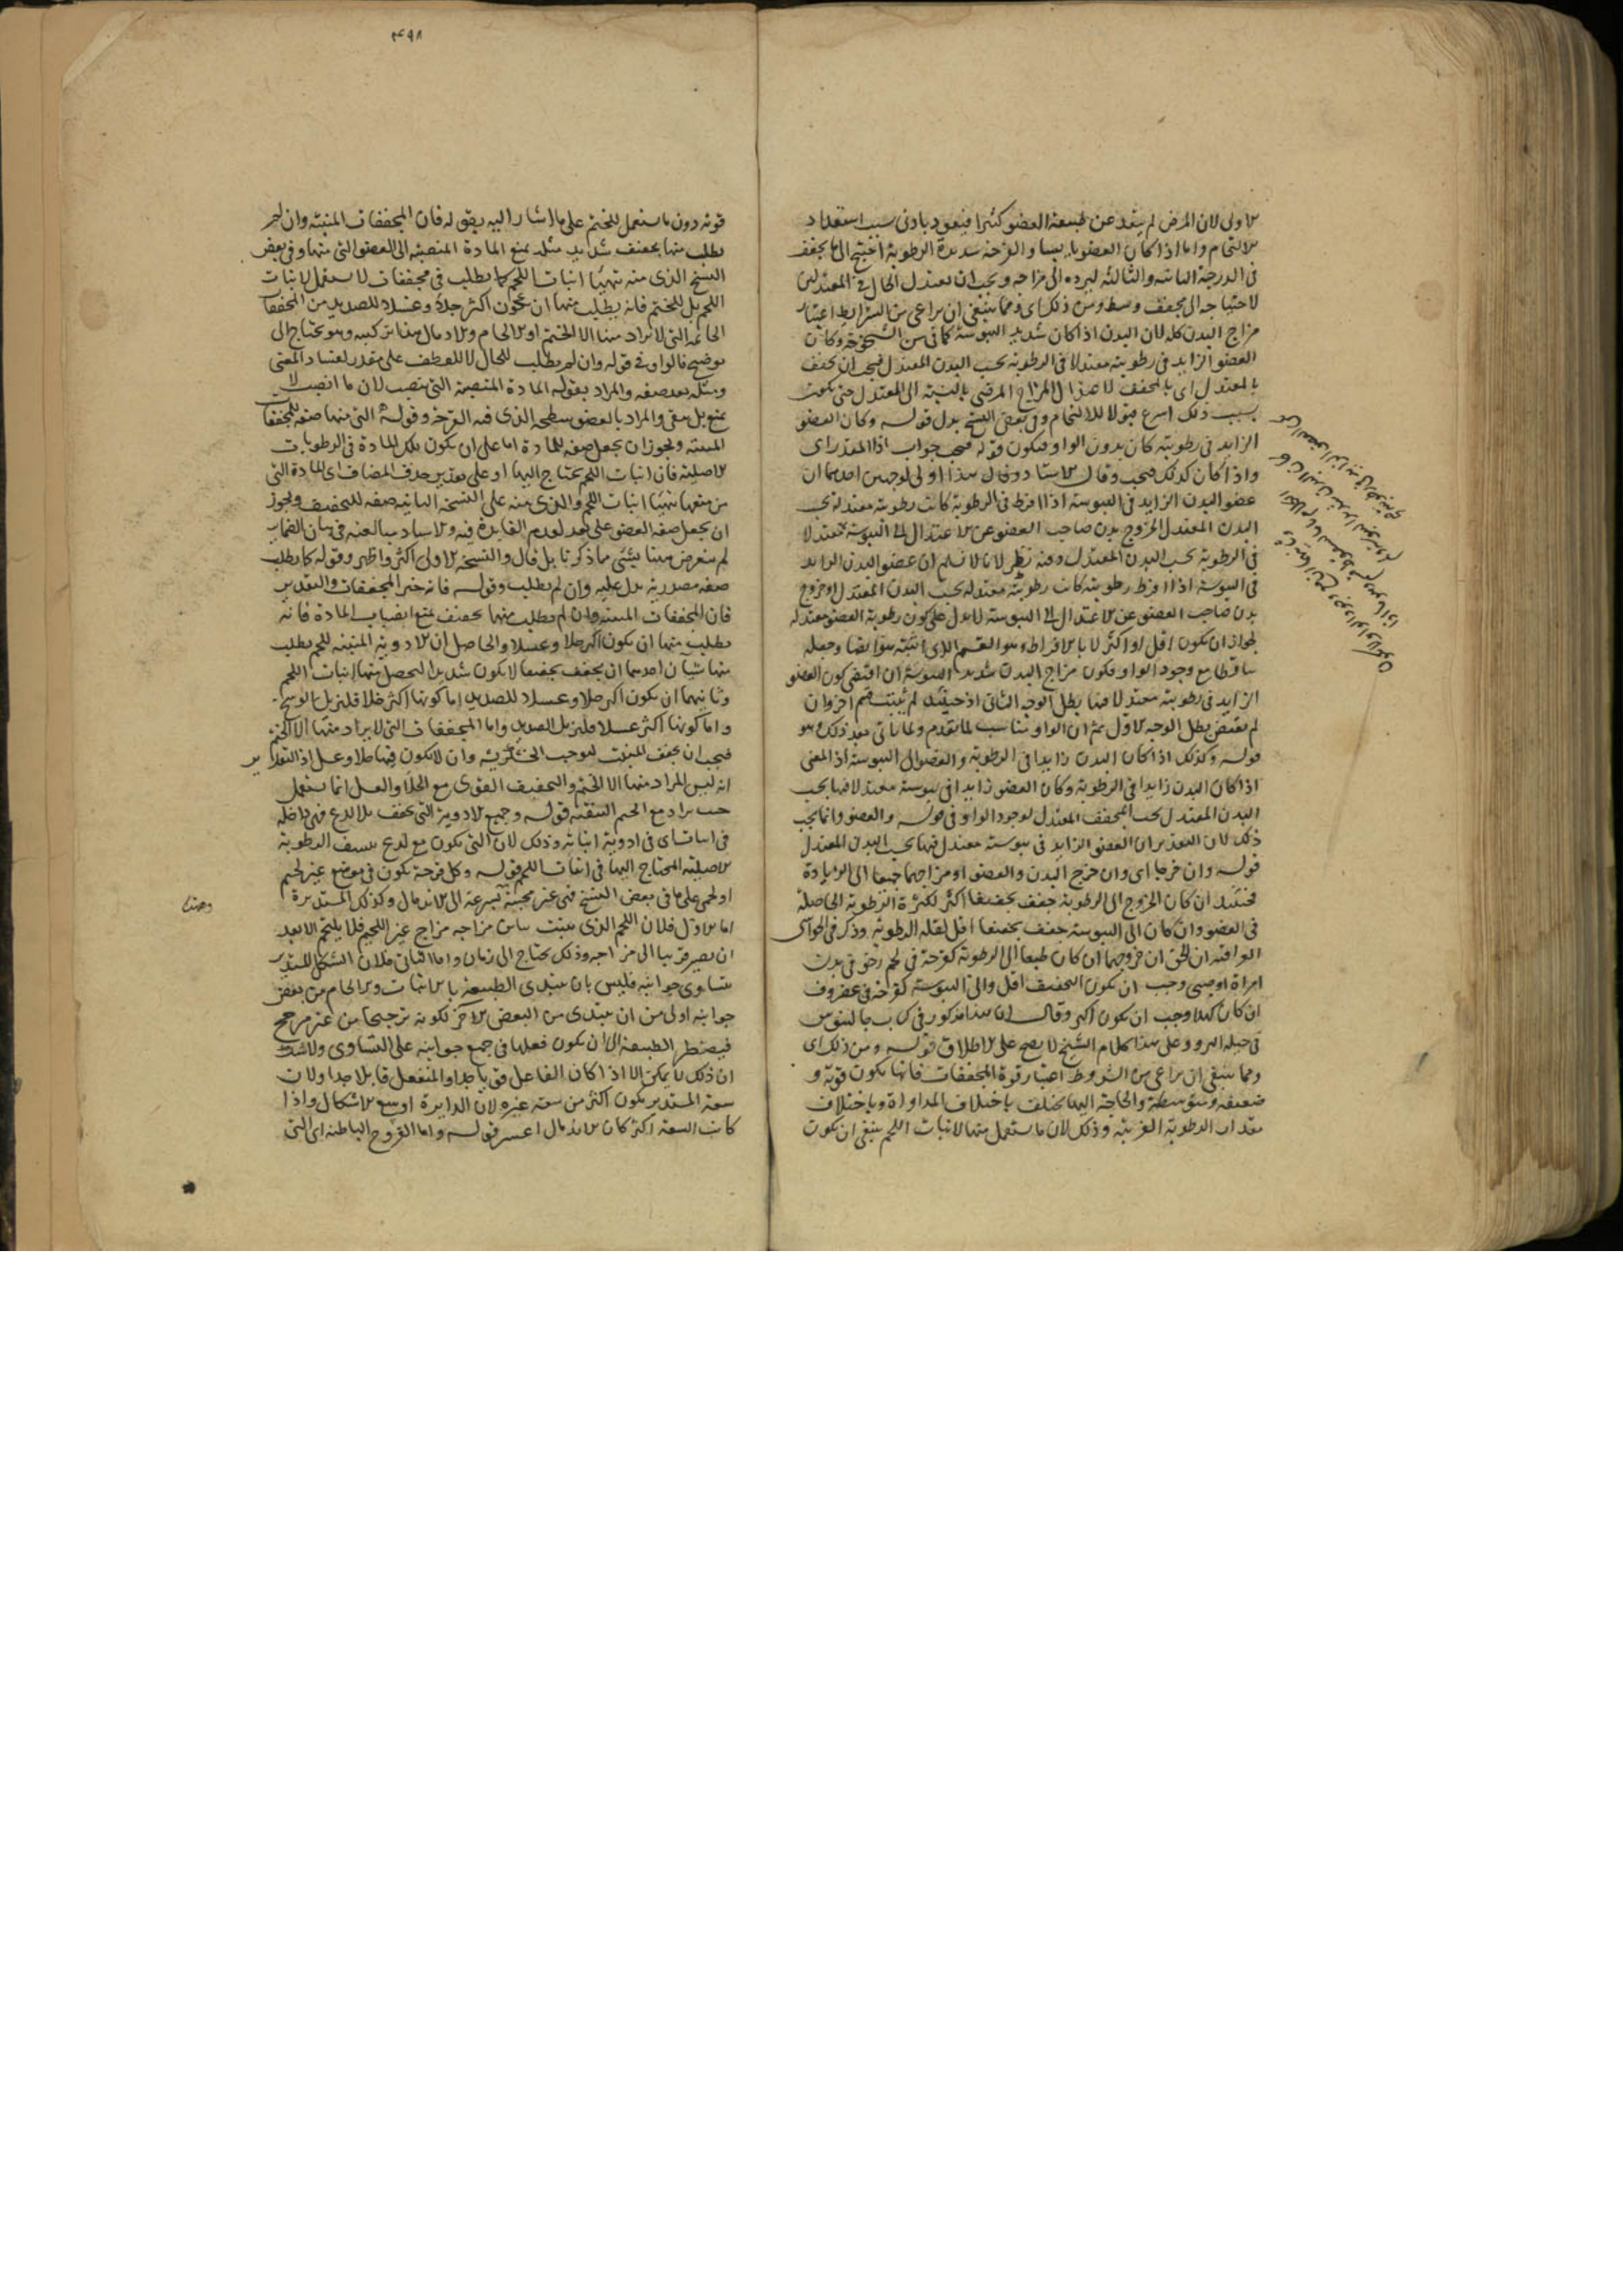 الاولى لان المرض لم يبعد عن طبيعة العضو كثيرا فيعود بادنى سبب استعداد
الالتحام واما اذا كان العضو يابسا والقرحة شديدة الرطوبة احتيج الى ما يجفف
فى الدرجة الثانية والثالثة ليرده الى مزاجه ويجب ان يعدل الحال فى المعتدلين
لاحتياجه الى مجفف وسط ومن ذلك اى ومما ينبغى ان يراعى من الشرايط اعتبار
مزاج البدن كله لان البدن اذا كان شديد اليبوسة كما فى سن الشيخوخة وكان
العضو الزايد فى رطوبته معتدلا فى الرطوبة بحسب البدن المعتدل فيجب ان يجفف
بالمعتدل اى بالمجفف المزاج المرضى بالنسبة الى المعتدل حتى يكون
بسبب ذلك اسرع قبولا للالتحام وفى بعض النسخ بدل قوله وكان العضو
الزايد فى رطوبته كان بدون الواو فيكون قوله فيجب جواب اذا المقدر اى
واذا كان كذلك فيجب وقال الاستاد وقال هذا اولى لوجهين احدهما ان
عضو البدن الزايد فى اليبوسة اذا افرط فى الرطوبة كانت رطوبته معتدلة بحسب
البدن المعتدل لخروج بدن صاحب العضو عن الاعتدال الى اليبوسة معتدلا
فى الرطوبة بحسب البدن المعتدل وفيه نظر لانا لا نسلم ان عضو البدن الزايد
فى اليبوسة اذا افرط رطوبته كانت رطوبته معتدلة بحسب البدن المعتدل وخروج
بدن صاحب العضو عن الاعتدال الى اليبوسة لا يدل على كون رطوبة العضو معتدلة
لجواز ان يكون اقل او اكثر لا بالافراط وهو القسم الذى اثبته هو ايضا وجعله
ساقطا مع وجود الواو فيكون مزاج البدن شديد اليبوسة ان اقتضى كون العضو
الزايد فى رطوبته معتدلا فيها بطل الوجه الثانى اذ حينئذ لم يثبت قسم اخر وان
لم يقتض بطل الوجه الاول ثم ان الواو يناسب لما تقدم ولما ياتى بعد ذلك هو
قوله وكذلك اذا كان البدن زايدا فى الرطوبة والعضو الى اليبوسة اذ المعنى
اذا كان البدن زايدا فى الرطوبة وكان العضو زايدا فى يبوسته معتدلا فيها بحسب
البدن المعتدل يجب المجفف المعتدل لوجود الواو فى قوله والعضو وانما يجب
ذلك لان التقدير ان العضو الزايد فى يبوسته معتدل فيها بحسب البدن المعتدل
قوله وان خرجا اى وان خرج البدن والعضو او مزاجهما جميعا الى الزيادة
فحينئذ ان كان الخروج الى الرطوبة جفف تجفيفا اكثر لكثرة الرطوبة الحاصلة
فى العضو وان كان الى اليبوسة جفف تجفيفا اقل لقلة الرطوبة وذكر فى الحواشى
العراقية ان الحق ان خروجهما ان كان طبعا الى الرطوبة كقرحة فى لحم رخو فى بدن
امراة او صبى وجب ان يكون التجفيف اقل والى اليبوسة كقرحة فى غضروف
ان كان كهلا وجب ان يكون اكثر وقال ان هذا مذكور فى كتاب جالينوس
فى حيلة البرو وعلى هذا كلام الشيخ لا يصح على الاطلاق قوله ومن ذلك اى
ومما ينبغى ان يراعى من الشروط اعتبار قوة المجففات فانها يكون قوية و
ضعيفة ومتوسطة والحاجة اليها تختلف باختلاف المداواة وباختلاف
مقدار الرطوبة الغريبة وذلك لان ما يستعمل منها لانبات اللحم ينبغى ان يكون
٤٩٨
قوته دون ما يستعمل للختم على ما اشار اليه بقوله فان المجففات المنبتة وان لم
يطلب منها تجفيف شديد مثله يمنع المادة المنصبة الى العضو التى منها وفى بعض
النسخ الذى منه تتهيأ انبات اللحم كما يطلب فى مجففات لا يستعمل لانبات
اللحم بل للختم فانه يطلب منها ان يكون اكثر جلاء وغسلا للصديد من المجففات
الخاتمة التى لا يراد منها الا الختم او الالحام والادمال وهو يحتاج الى
توضيح فالواو فى قوله وان لم يطلب للحال لا للعطف على مقدر لفساد المعنى
ومثله بعد صفة والمراد بقوله المادة المنصبة التى ينصب لان ما انصب لا
يمنع بل ينقى والمراد بالعضو سطحه الذى فيه القرحة وقوله التى منها صفة للمجففات
المنبتة ويجوز ان يجعل صفة للمادة اما على ان يكون تلك المادة فى الرطوبات
الاصلية فان انبات اللحم يحتاج اليها او على تقدير حذف المضاف اى المادة التى
من منعها تتهيأ انبات اللحم والذى منه على النسخة الثانية صفة للتجفيف ويجوز
ان يجعل صفة العضو على بعد لعدم الفايدة فيه والاستاد مبالغته فى بيان الضماير
لم يتعرض هنا بشئ مما ذكرنا بل قال والنسخة الاولى اكثر واظهر وقوله كما يطلب
صفة مصدرية يدل عليه وان لم يطلب وقوله فانه خبر المجففات والتقدير
فان المجففات المنبتة وان لم يطلب منها تجفيف يمنع انصباب المادة فانه
يطلب منها ان يكون اكثر جلا وغسلا والحاصل ان الادوية المنبتة للحم يطلب
منها شيان احدهما ان يجفف تجفيفا لا يكون شديدا ليحصل منها انبات اللحم
وثانيهما ان يكون اكثر جلا وغسلا للصديد اما كونها اكثر جلا فلتزيل الوسخ
واما كونها اكثر غسلا فلتزيل الصديد واما المجففات التى لا يراد منها الا الختم
فيجب ان يجفف للمنبت ليوجب الخشكريشة وان لا يكون فيها جلا وغسل اذ التقدير
انه ليس المراد منها الا الختم والتجفيف القوى مع الجلا والغسل انما يستعمل
حيث يراد مع الختم التنقية قوله وجميع الادوية التى يجفف بلا لذع فهى داخلة
فى انبات اى فى ادوية انباته وذلك لان التى يكون مع لذع ينشف الرطوبة
الاصلية المحتاج اليها فى انبات اللحم قوله وكل قرحة يكون فى موضع غير لحيم
او لحمى على ما فى بعض النسخ فهى غير مجيبة بسرعة الى الاندمال وكذلك المستديرة
اما الاول فلان اللحم الذى ينبت يباين مزاجه مزاج غير اللحيم فلا يلتحم الا بعد
ان يصير قريبا الى مزاجه وذلك يحتاج الى زمان واما الثانى فلان الشكل المستدير
متساوى جوانبه فليس بان يبتدى الطبيعة بالانبات والالحام من بعض
جوانبه اولى من ان يبتدى من البعض الاخر لكونه ترجيحا من غير مرجح
فيضطر الطبيعة الى ان يكون فعلها فى جميع جوانبه على التساوى ولا شك
ان ذلك لا يمكن الا اذا كان الفاعل قويا جدا والمنفعل قابلا جدا ولان
سعة المستدير يكون اكثر من سعة غيره لان الدايرة اوسع الاشكال واذا
كانت السعة اكثر كان الاندمال اعسر قوله واما القروح الباطنة اى التى
وهنا